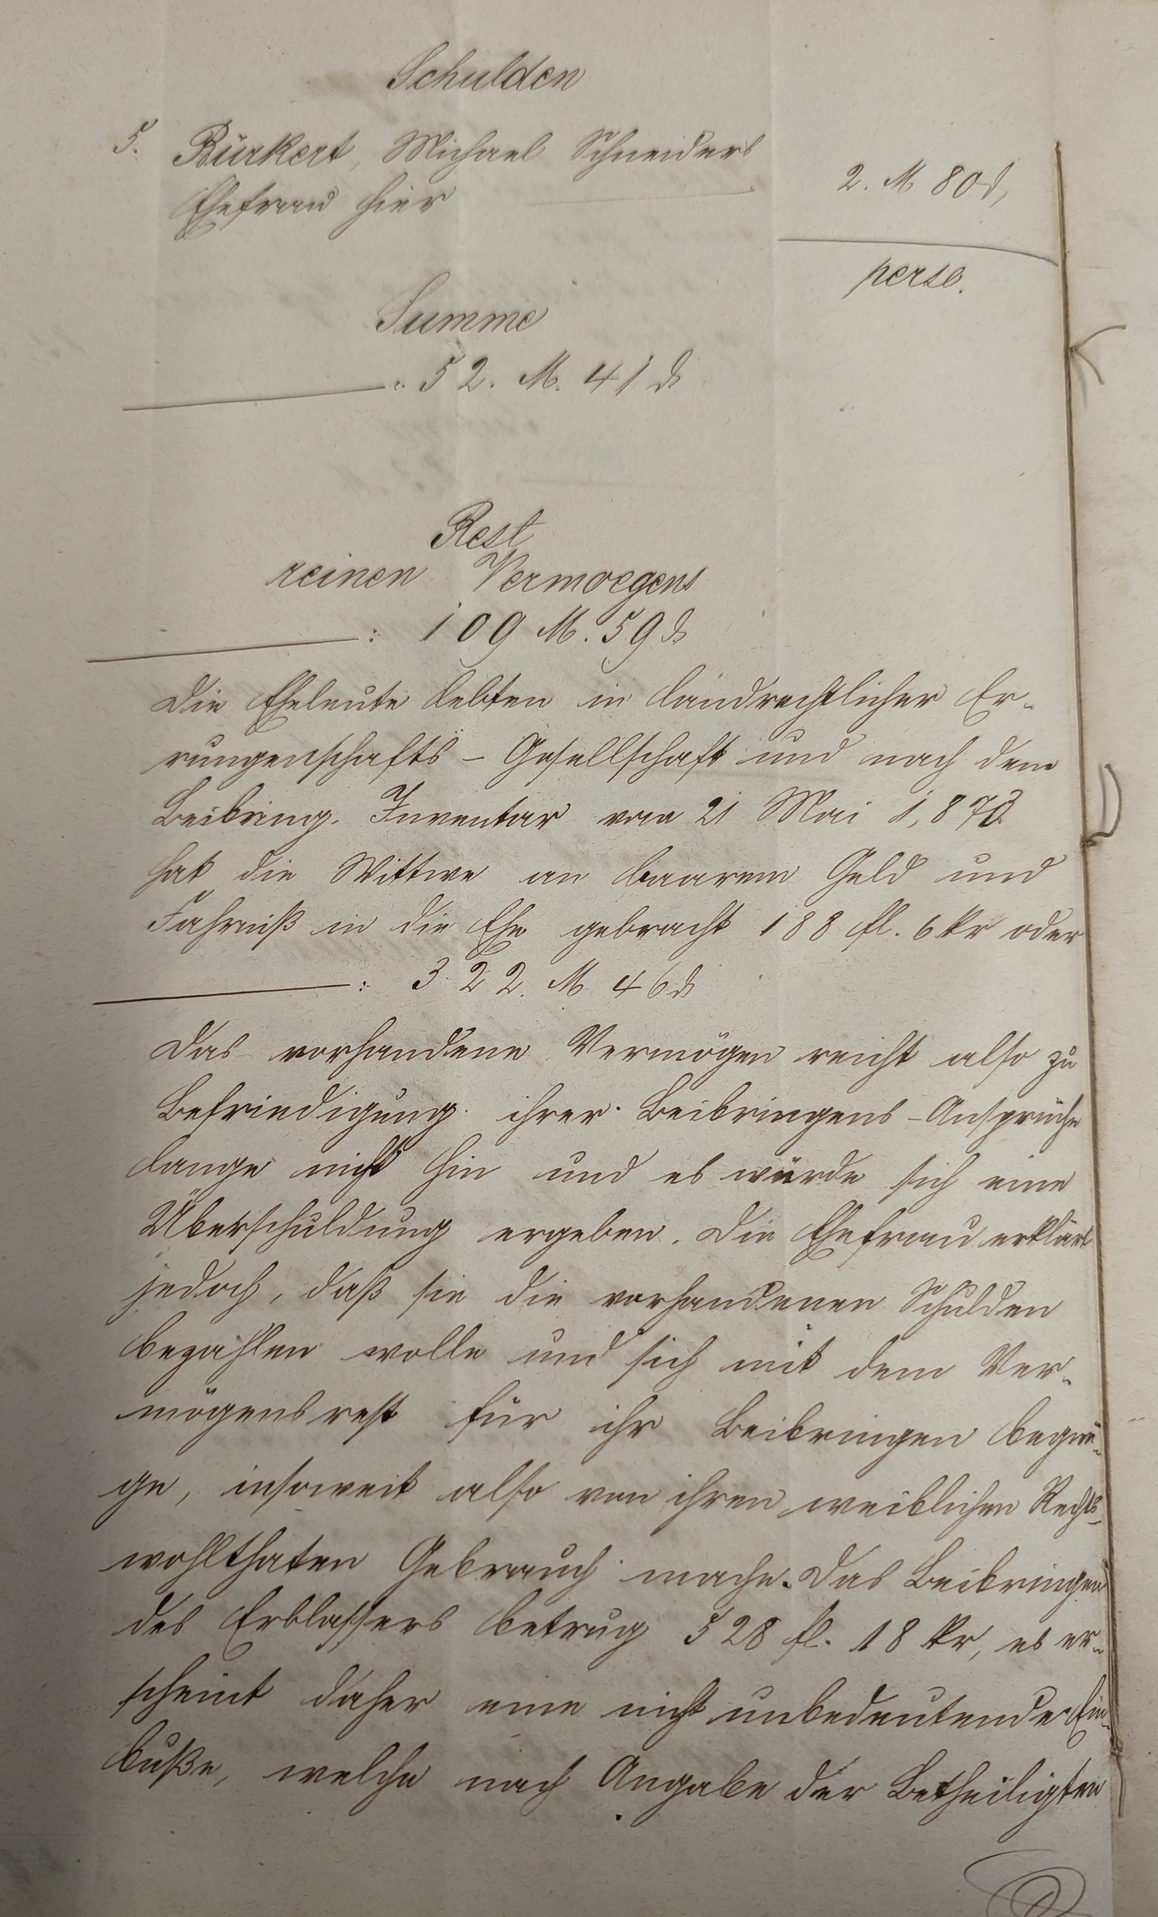 Schulden
5. Bürkert, Michael Schneiders
Ehefrau hier
2. M 80 ₰,
perse.
Summe
: 52. M. 41 ₰
Rest
reinen Vermoegens
: 109 M. 59 ₰
Die Eheleute lebten in landrechtlicher Er-
rungenschafts-Gesellschaft und nach dem
Beibring. Inventar vom 21 Mai 1,873
hat die Wittwe an baarem Geld und
Fahrniß in die Ehe gebracht 188 fl. 6 kr oder
: 322. M 46 ₰
Das vorhandene Vermögen reicht also zu
Befriedigung ihrer Beibringens-Ansprüche
lange nicht hin und es würde sich eine
Überschuldung ergeben. Die Ehefrau erklärt
jedoch, daß sie die vorhandenen Schulden
bezahlen wolle und sich mit dem Ver-
mögensrest für ihr Beibringen begnü-
ge, insoweit also von ihren weiblichen Rechts-
wohlthaten Gebrauch mache. Das Beibringen
des Erblassers betrug 528 fl. 18 kr, es er-
scheint daher eine nicht unbedeutende Ein-
buße, welche nach Angabe der Betheiligten